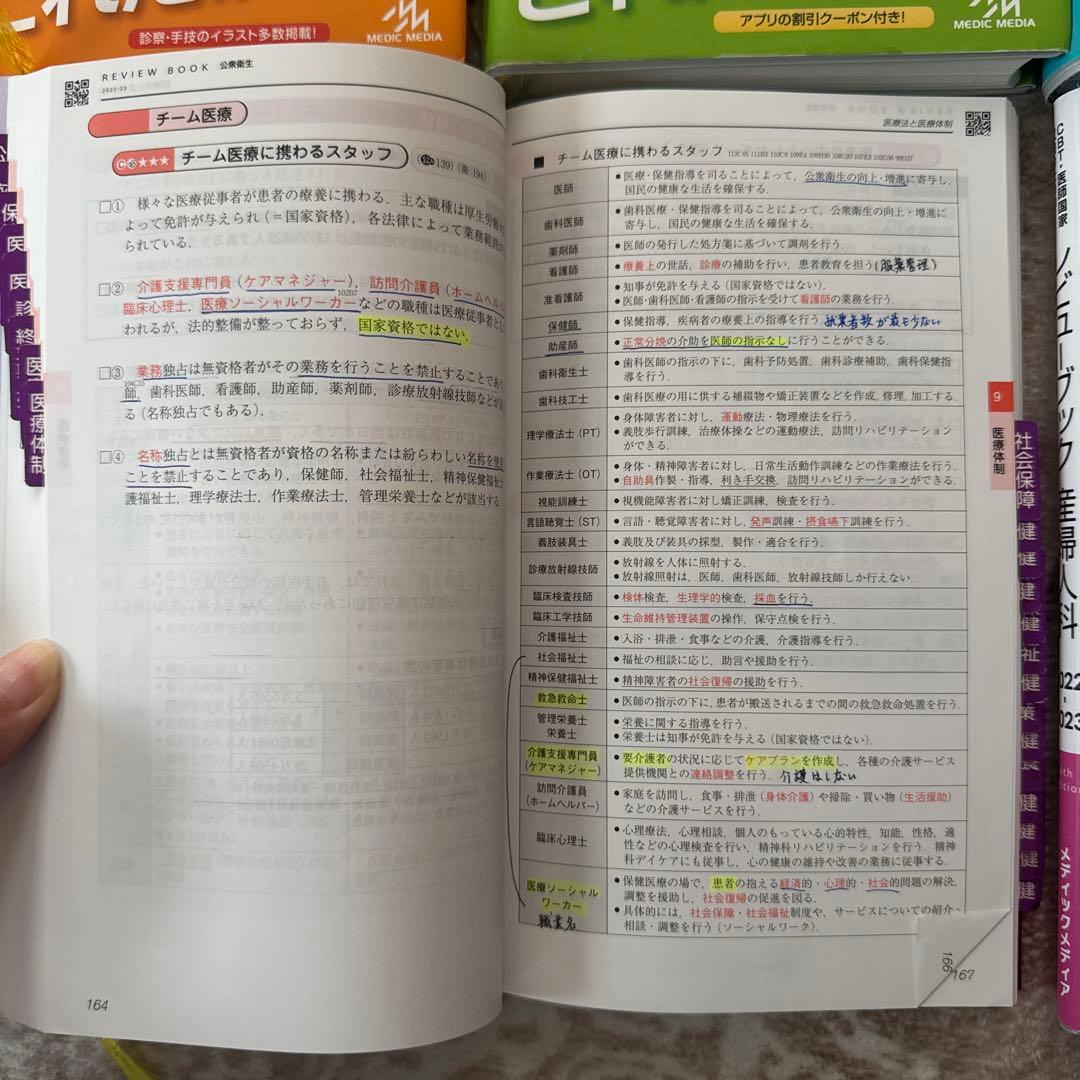 診察・手技のイラスト多数掲載!
MEDIC MEDIA
アプリの割引クーポン付き!
MEDIC MEDIA
REVIEW BOOK 公衆衛生
2022-23
チーム医療
C 必 ★★★ チーム医療に携わるスタッフ (公 139) (衛-194)
□① 様々な医療従事者が患者の療養に携わる.主な職種は厚生労働
よって免許が与えられ(=国家資格),各法律によって業務範囲が
られている.
□② 介護支援専門員(ケアマネジャー),訪問介護員(ホームヘルパ
102B7
臨床心理士,医療ソーシャルワーカーなどの職種は医療従事者とし
われるが,法的整備が整っておらず,国家資格ではない.
□③ 業務独占は無資格者がその業務を行うことを禁止することであり
104C15
師,歯科医師,看護師,助産師,薬剤師,診療放射線技師などが
(名称独占でもある).
□④ 名称独占とは無資格者が資格の名称または紛らわしい名称を使
ことを禁止することであり,保健師,社会福祉士,精神保健福祉
護福祉士,理学療法士,作業療法士,管理栄養士などが該当する
164
医療法と医療体制
■ チーム医療に携わるスタッフ 112C45 111B2 110C9 109E4 109H30 108G20 107E3 102G36 99D27
医師 ●医療・保健指導を司ることによって,公衆衛生の向上・増進に寄与し,
国民の健康な生活を確保する.
歯科医師 ●歯科医療・保健指導を司ることによって,公衆衛生の向上・増進に
寄与し,国民の健康な生活を確保する.
薬剤師 ●医師の発行した処方箋に基づいて調剤を行う.
看護師 ●療養上の世話,診療の補助を行い,患者教育を担う(服薬管理)
准看護師 ●知事が免許を与える(国家資格ではない).
●医師・歯科医師・看護師の指示を受けて看護師の業務を行う.
保健師 ●保健指導,疾病者の療養上の指導を行う.就業者数が最も少ない
助産師 ●正常分娩の介助を医師の指示なしに行うことができる.
歯科衛生士 ●歯科医師の指示の下に,歯科予防処置,歯科診療補助,歯科保健指
導を行う.
歯科技工士 ●歯科医療の用に供する補綴物や矯正装置などを作成,修理,加工する.
理学療法士(PT) ●身体障害者に対し,運動療法・物理療法を行う.
●義肢歩行訓練,治療体操などの運動療法,訪問リハビリテーション
ができる.
作業療法士(OT) ●身体・精神障害者に対し,日常生活動作訓練などの作業療法を行う.
●自助具作製・指導,利き手交換,訪問リハビリテーションができる.
視能訓練士 ●視機能障害者に対し矯正訓練,検査を行う.
言語聴覚士(ST) ●言語・聴覚障害者に対し,発声訓練・摂食嚥下訓練を行う.
義肢装具士 ●義肢及び装具の採型,製作・適合を行う.
診療放射線技師 ●放射線を人体に照射する.
●放射線照射は,医師,歯科医師,放射線技師しか行えない.
臨床検査技師 ●検体検査,生理学的検査,採血を行う.
臨床工学技士 ●生命維持管理装置の操作,保守点検を行う.
介護福祉士 ●入浴・排泄・食事などの介護,介護指導を行う.
社会福祉士 ●福祉の相談に応じ,助言や援助を行う.
精神保健福祉士 ●精神障害者の社会復帰の援助を行う.
救急救命士 ●医師の指示の下に,患者が搬送されるまでの間の救急救命処置を行う.
管理栄養士 ●栄養に関する指導を行う.
栄養士 ●栄養士は知事が免許を与える(国家資格ではない).
介護支援専門員 ●要介護者の状況に応じてケアプランを作成し,各種の介護サービス
(ケアマネジャー) 提供機関との連絡調整を行う.介護はしない
訪問介護員 ●家庭を訪問し,食事・排泄(身体介護)や掃除・買い物(生活援助)
(ホームヘルパー) などの介護サービスを行う.
臨床心理士 ●心理療法,心理相談,個人のもっている心的特性,知能,性格,適
性などの心理検査を行い,精神科リハビリテーションを行う.精神
科デイケアにも従事し,心の健康の維持や改善の業務に従事する.
医療ソーシャル ●保健医療の場で,患者の抱える経済的・心理的・社会的問題の解決,
ワーカー 調整を援助し,社会復帰の促進を図る.
職業名 ●具体的には,社会保障・社会福祉制度や,サービスについての紹介・
相談・調整を行う(ソーシャルワーク).
166
167
9
医療体制
医療体制
社会保障
健
健
健
健
祉
健
策
健
健
健
健
健
CBT・医師国家
レビューブック 産婦人科
2022-
2023
メディックメディア